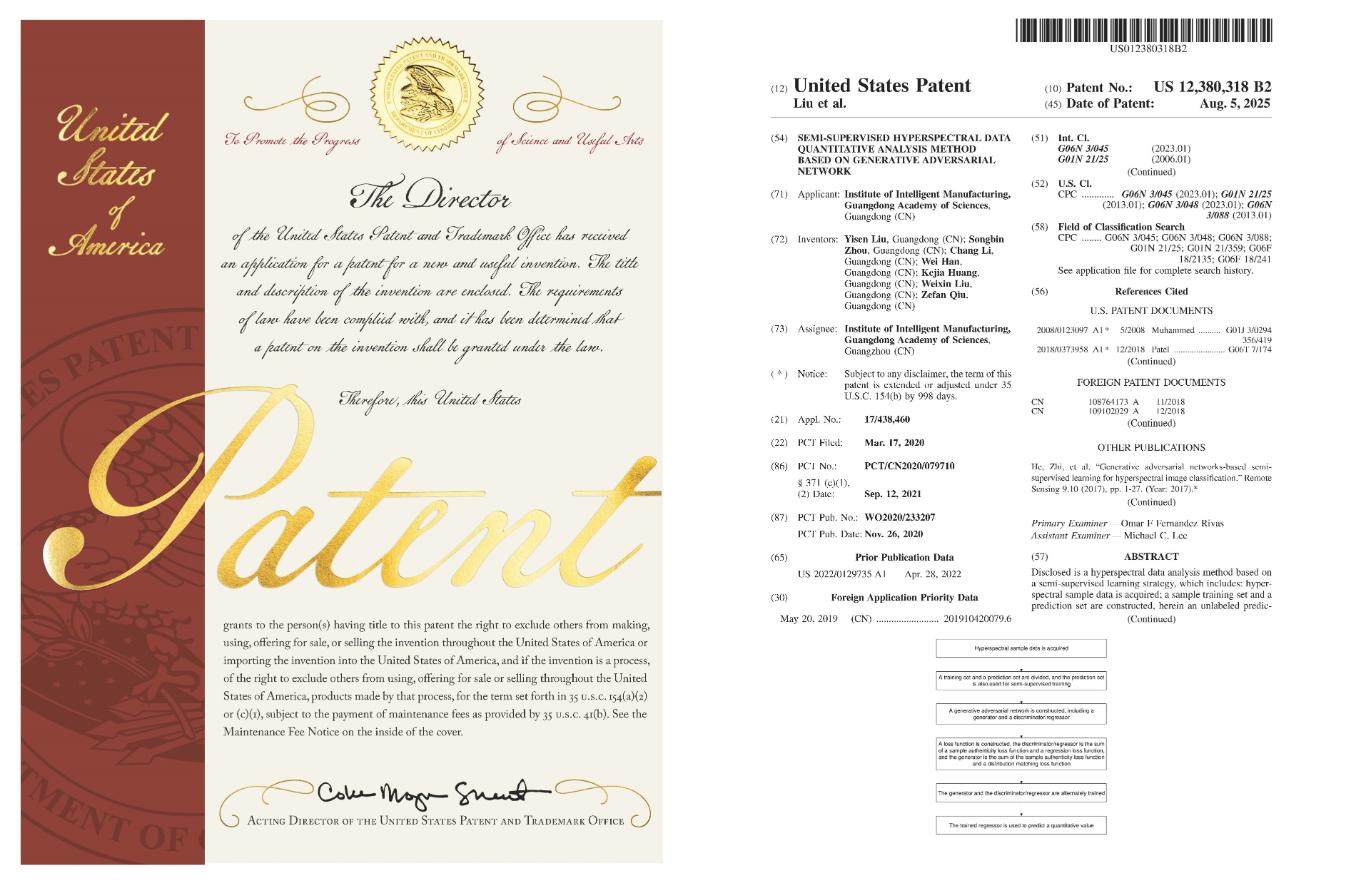 United
States
of
America
To Promote the Progress
of Science and Useful Arts
The Director
of the United States Patent and Trademark Office has received
an application for a patent for a new and useful invention. The title
and description of the invention are enclosed. The requirements
of law have been complied with, and it has been determined that
a patent on the invention shall be granted under the law.
Therefore, this United States
Patent
grants to the person(s) having title to this patent the right to exclude others from making,
using, offering for sale, or selling the invention throughout the United States of America or
importing the invention into the United States of America, and if the invention is a process,
of the right to exclude others from using, offering for sale or selling throughout the United
States of America, products made by that process, for the term set forth in 35 U.S.C. 154(a)(2)
or (c)(1), subject to the payment of maintenance fees as provided by 35 U.S.C. 41(b). See the
Maintenance Fee Notice on the inside of the cover.
ACTING DIRECTOR OF THE UNITED STATES PATENT AND TRADEMARK OFFICE
US012380318B2
(12) United States Patent
Liu et al.
(10) Patent No.: US 12,380,318 B2
(45) Date of Patent: Aug. 5, 2025
(54) SEMI-SUPERVISED HYPERSPECTRAL DATA
QUANTITATIVE ANALYSIS METHOD
BASED ON GENERATIVE ADVERSARIAL
NETWORK
(71) Applicant: Institute of Intelligent Manufacturing,
Guangdong Academy of Sciences,
Guangdong (CN)
(72) Inventors: Yisen Liu, Guangdong (CN); Songbin
Zhou, Guangdong (CN); Chang Li,
Guangdong (CN); Wei Han,
Guangdong (CN); Kejia Huang,
Guangdong (CN); Weixin Liu,
Guangdong (CN); Zefan Qiu,
Guangdong (CN)
(73) Assignee: Institute of Intelligent Manufacturing,
Guangdong Academy of Sciences,
Guangzhou (CN)
( * ) Notice: Subject to any disclaimer, the term of this
patent is extended or adjusted under 35
U.S.C. 154(b) by 998 days.
(21) Appl. No.: 17/438,460
(22) PCT Filed: Mar. 17, 2020
(86) PCT No.: PCT/CN2020/079710
§ 371 (c)(1),
(2) Date: Sep. 12, 2021
(87) PCT Pub. No.: WO2020/233207
PCT Pub. Date: Nov. 26, 2020
(65) Prior Publication Data
US 2022/0129735 A1 Apr. 28, 2022
(30) Foreign Application Priority Data
May 20, 2019 (CN) ......................... 201910420079.6
(51) Int. Cl.
G06N 3/045 (2023.01)
G01N 21/25 (2006.01)
(Continued)
(52) U.S. Cl.
CPC ............ G06N 3/045 (2023.01); G01N 21/25
(2013.01); G06N 3/048 (2023.01); G06N
3/088 (2013.01)
(58) Field of Classification Search
CPC ....... G06N 3/045; G06N 3/048; G06N 3/088;
G01N 21/25; G01N 21/359; G06F
18/2135; G06F 18/241
See application file for complete search history.
(56) References Cited
U.S. PATENT DOCUMENTS
2008/0123097 A1* 5/2008 Muhammed ......... G01J 3/0294
356/419
2018/0373958 A1* 12/2018 Patel ........................ G06T 7/174
(Continued)
FOREIGN PATENT DOCUMENTS
CN 108764173 A 11/2018
CN 109102029 A 12/2018
(Continued)
OTHER PUBLICATIONS
He, Zhi, et al. “Generative adversarial networks-based semi-
supervised learning for hyperspectral image classification.” Remote
Sensing 9.10 (2017), pp. 1-27. (Year: 2017).*
(Continued)
Primary Examiner — Omar F Fernandez Rivas
Assistant Examiner — Michael C. Lee
(57) ABSTRACT
Disclosed is a hyperspectral data analysis method based on
a semi-supervised learning strategy, which includes: hyper-
spectral sample data is acquired; a sample training set and a
prediction set are constructed, herein an unlabeled predic-
(Continued)
Hyperspectral sample data is acquired
A training set and a prediction set are divided, and the prediction set
is also used for semi-supervised training
A generative adversarial network is constructed, including a
generator and a discriminator/regressor
A loss function is constructed, the discriminator/regressor is the sum
of a sample authenticity loss function and a regression loss function,
and the generator is the sum of the sample authenticity loss function
and a distribution matching loss function
The generator and the discriminator/regressor are alternately trained
The trained regressor is used to predict a quantitative value